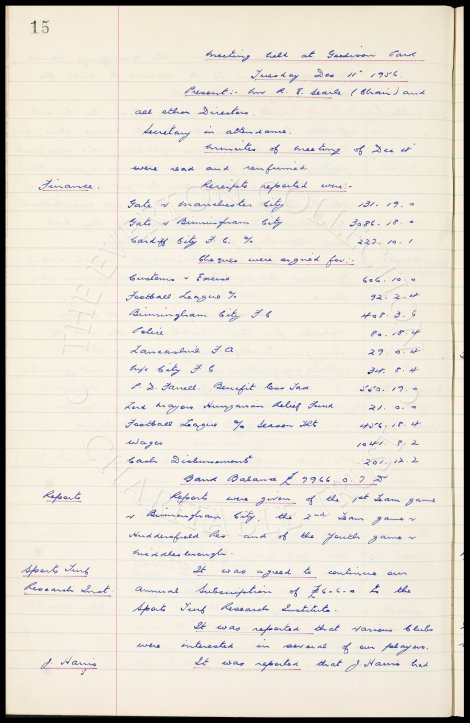 15
Meeting held at Goodison Park
Tuesday Dec 11th 1956.
Present:- Mr R. E. Searle (Chair) and
all other Directors.
Secretary in attendance.
Minutes of meeting of Dec 4th
were read and confirmed
Finance. Receipts reported were:-
Gate v Manchester City 131. 19. 0
Gate v Birmingham City 3086. 18. 0
Cardiff City F C. % 227. 10. 1
Cheques were signed for:-
Customs & Excise 606. 10. 0
Football League % 92. 2. 4
Birmingham City F C 408. 3. 6
Police 80. 18. 4
Lancashire F A 29. 0. 4
M/c City F C 34. 8. 4
P. D. Farrell. Benefit less Tax 550. 19. 0
Lord Mayors Hungarian Relief Fund 21. 0. 0
Football League % Season Tkt 456. 18. 4
Wages 1041. 8. 2
Cash Disbursements 201. 12. 2
Bank Balance £ 7966. 0. 7 Dr
Reports Reports were given of the 1st Team game
v Birmingham City. the 2nd Team game v
Huddersfield Res and of the Youth game v
Middlesbrough.
Sports Turf It was agreed to continue our
Research Inst annual Subscription of £6-6-0 to the
Sports Turf Research Institute.
It was reported that various Clubs
were interested in several of our players.
J. Harris It was reported that J. Harris had
THE EVERTON COLLECTION
CHARITABLE